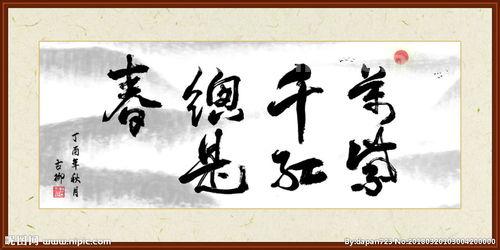 萬紫
千红
總是
春
丁酉年秋月
古柳
昵图网 www.nipic.com
By:dapan723 No:20180320103004200000